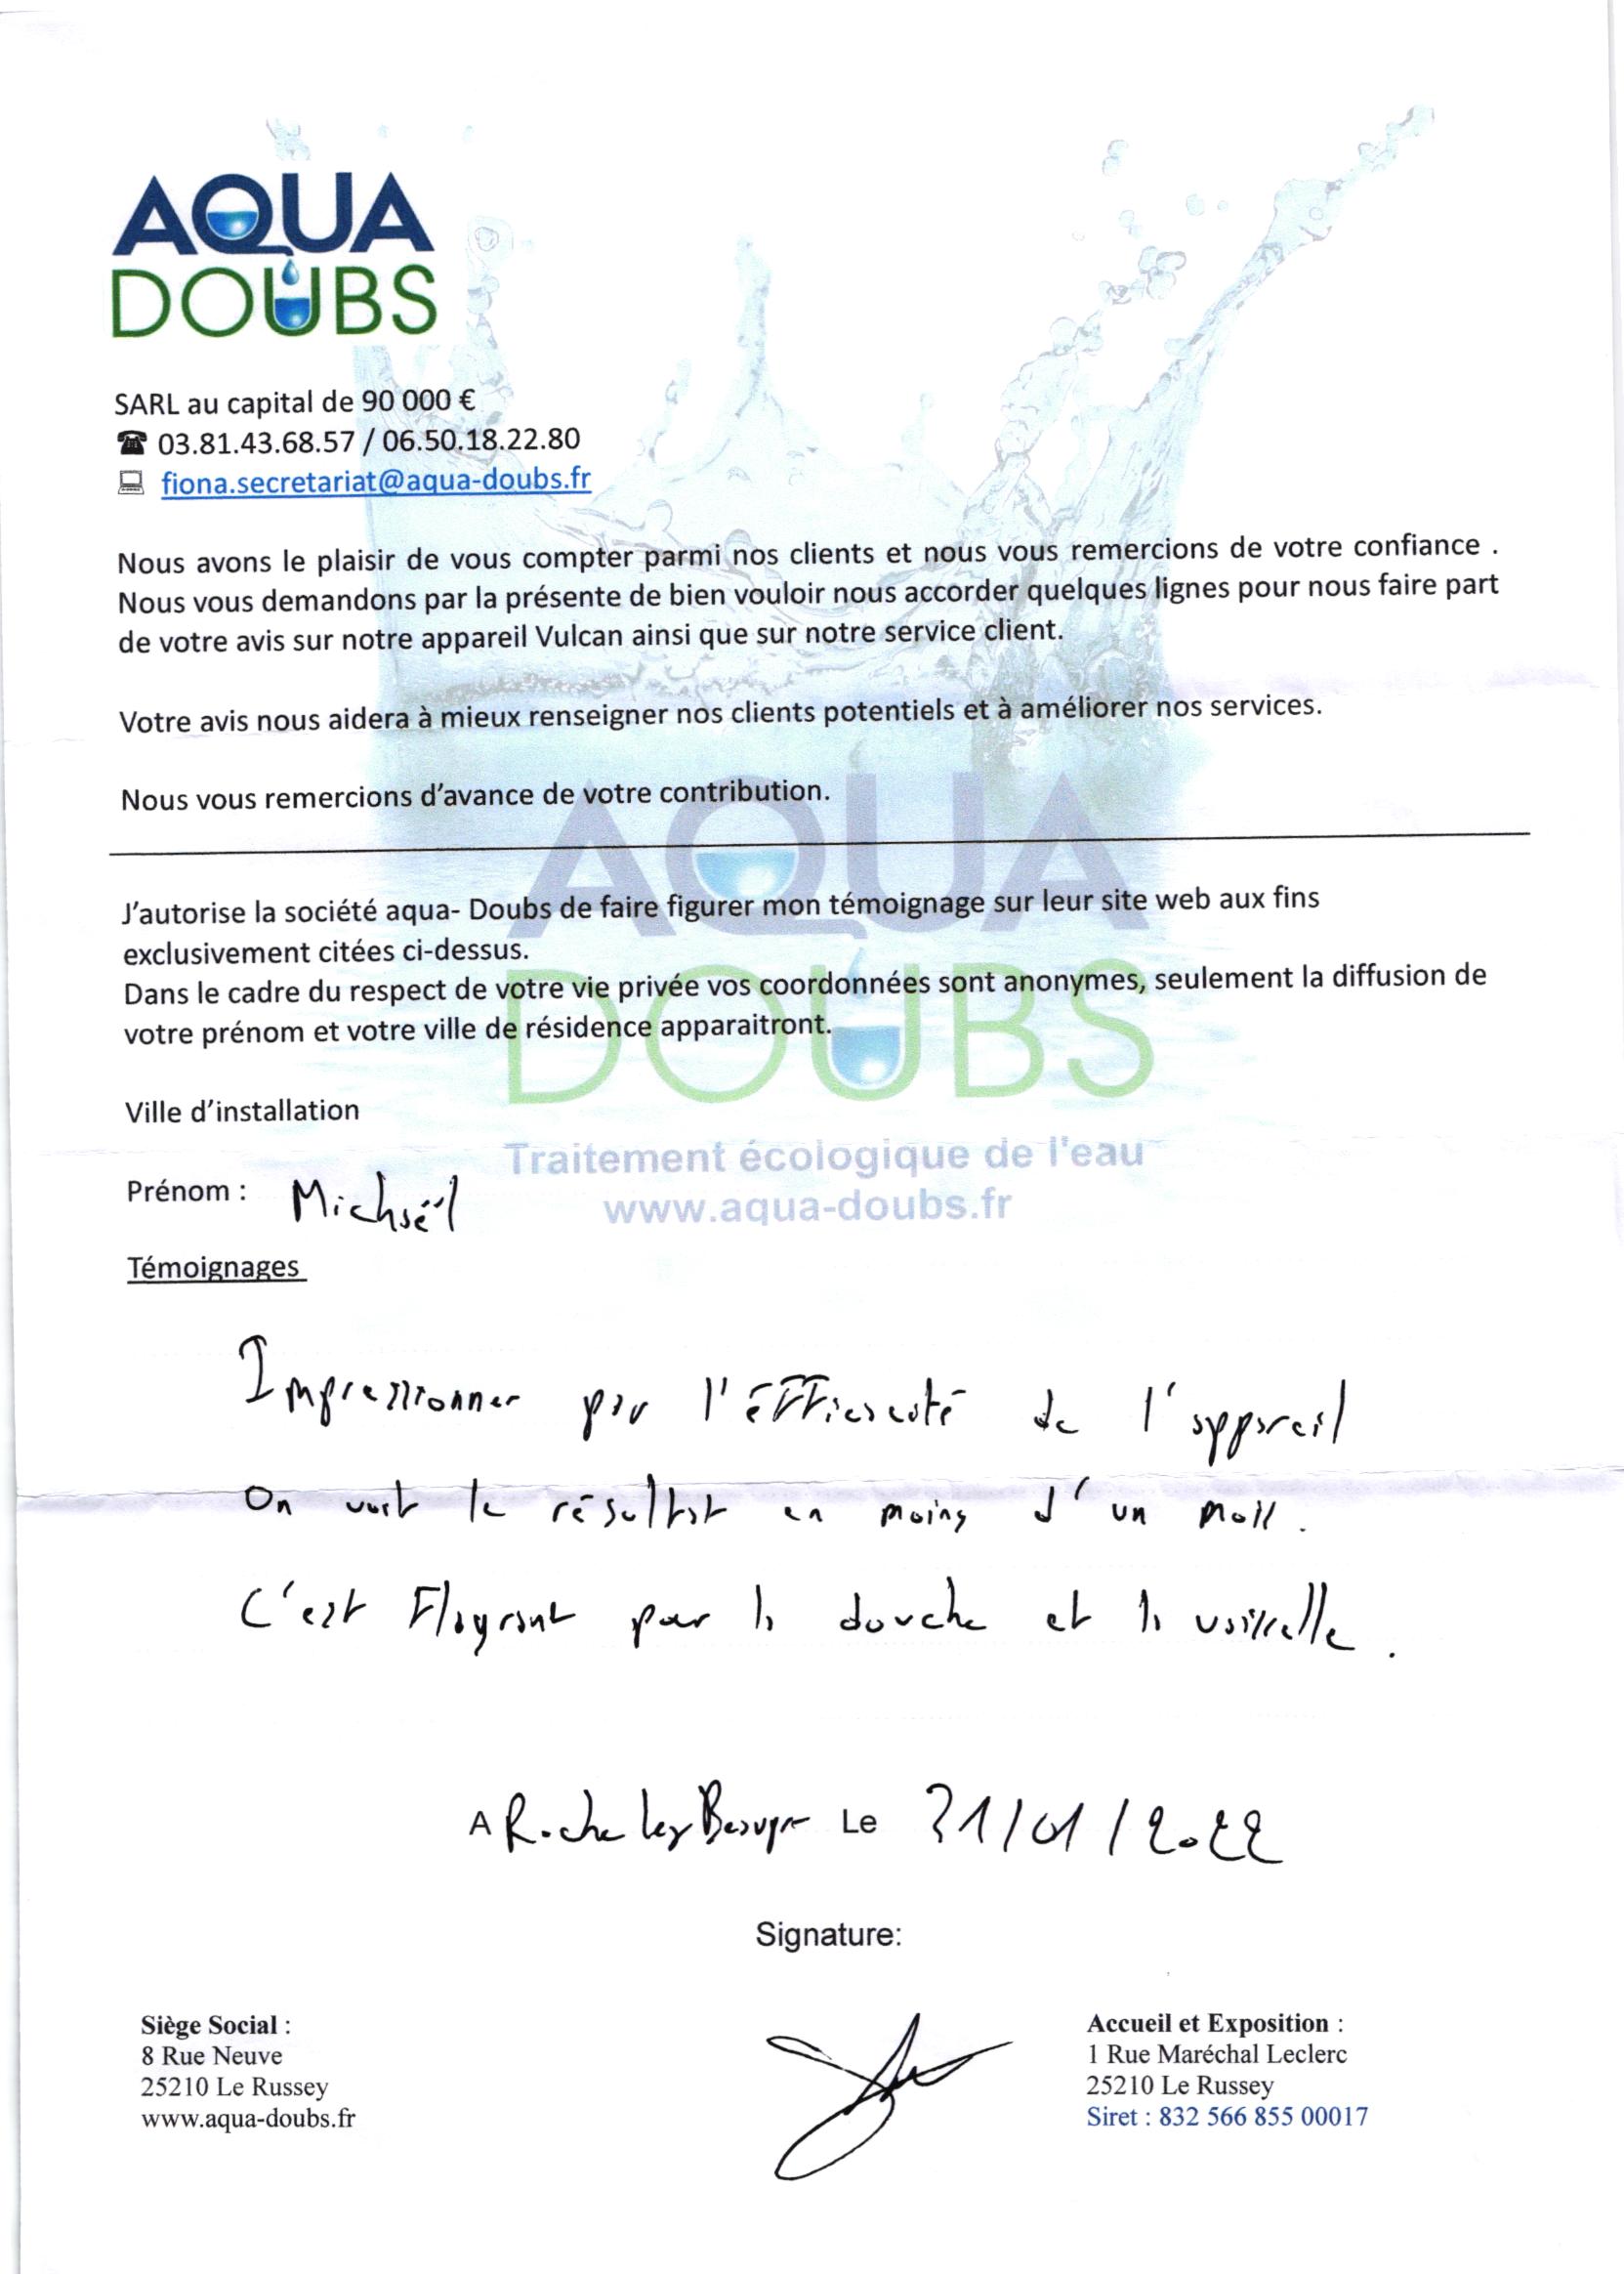 AQUA
DOUBS
SARL au capital de 90 000 €
03.81.43.68.57 / 06.50.18.22.80
fiona.secretariat@aqua-doubs.fr
Nous avons le plaisir de vous compter parmi nos clients et nous vous remercions de votre confiance .
Nous vous demandons par la présente de bien vouloir nous accorder quelques lignes pour nous faire part
de votre avis sur notre appareil Vulcan ainsi que sur notre service client.
Votre avis nous aidera à mieux renseigner nos clients potentiels et à améliorer nos services.
Nous vous remercions d’avance de votre contribution.
AQUA
J’autorise la société aqua- Doubs de faire figurer mon témoignage sur leur site web aux fins
exclusivement citées ci-dessus.
Dans le cadre du respect de votre vie privée vos coordonnées sont anonymes, seulement la diffusion de
votre prénom et votre ville de résidence apparaitront.
DOUBS
Ville d’installation
Traitement écologique de l'eau
Prénom : Michaël
www.aqua-doubs.fr
Témoignages
Impressionner par l'éfficacité de l'appareil
On voit le résultat en moins d'un mois.
C'est Flagrant pour la douche et la vaisselle.
A Roche lez Beaupre Le 31/01/2022
Signature:
Siège Social :
8 Rue Neuve
25210 Le Russey
www.aqua-doubs.fr
Accueil et Exposition :
1 Rue Maréchal Leclerc
25210 Le Russey
Siret : 832 566 855 00017